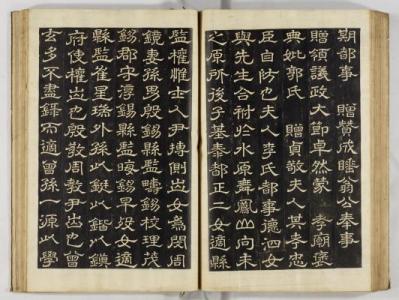 期部事　贈贊成睡翁公奉事
贈領議政大節卓然蒙　孝廟褒
典妣郭氏　贈貞敬夫人其孝忠
臣自防也夫人李氏部事德泗女
與先生合祔於水原舞鳳山向未
之原所後子基奉都正二女適縣
監權惟士人尹搏側出女爲閔周
鏡妻孫男殷錫縣監疇錫校理茂
錫郡守淳錫縣監晦錫早殁女適
縣監崔星瑞外孫以鋋以鍇以鎮
府使權尚也殷敎周敎尹尚也曾
玄多不盡錄而適曾孫一源以學